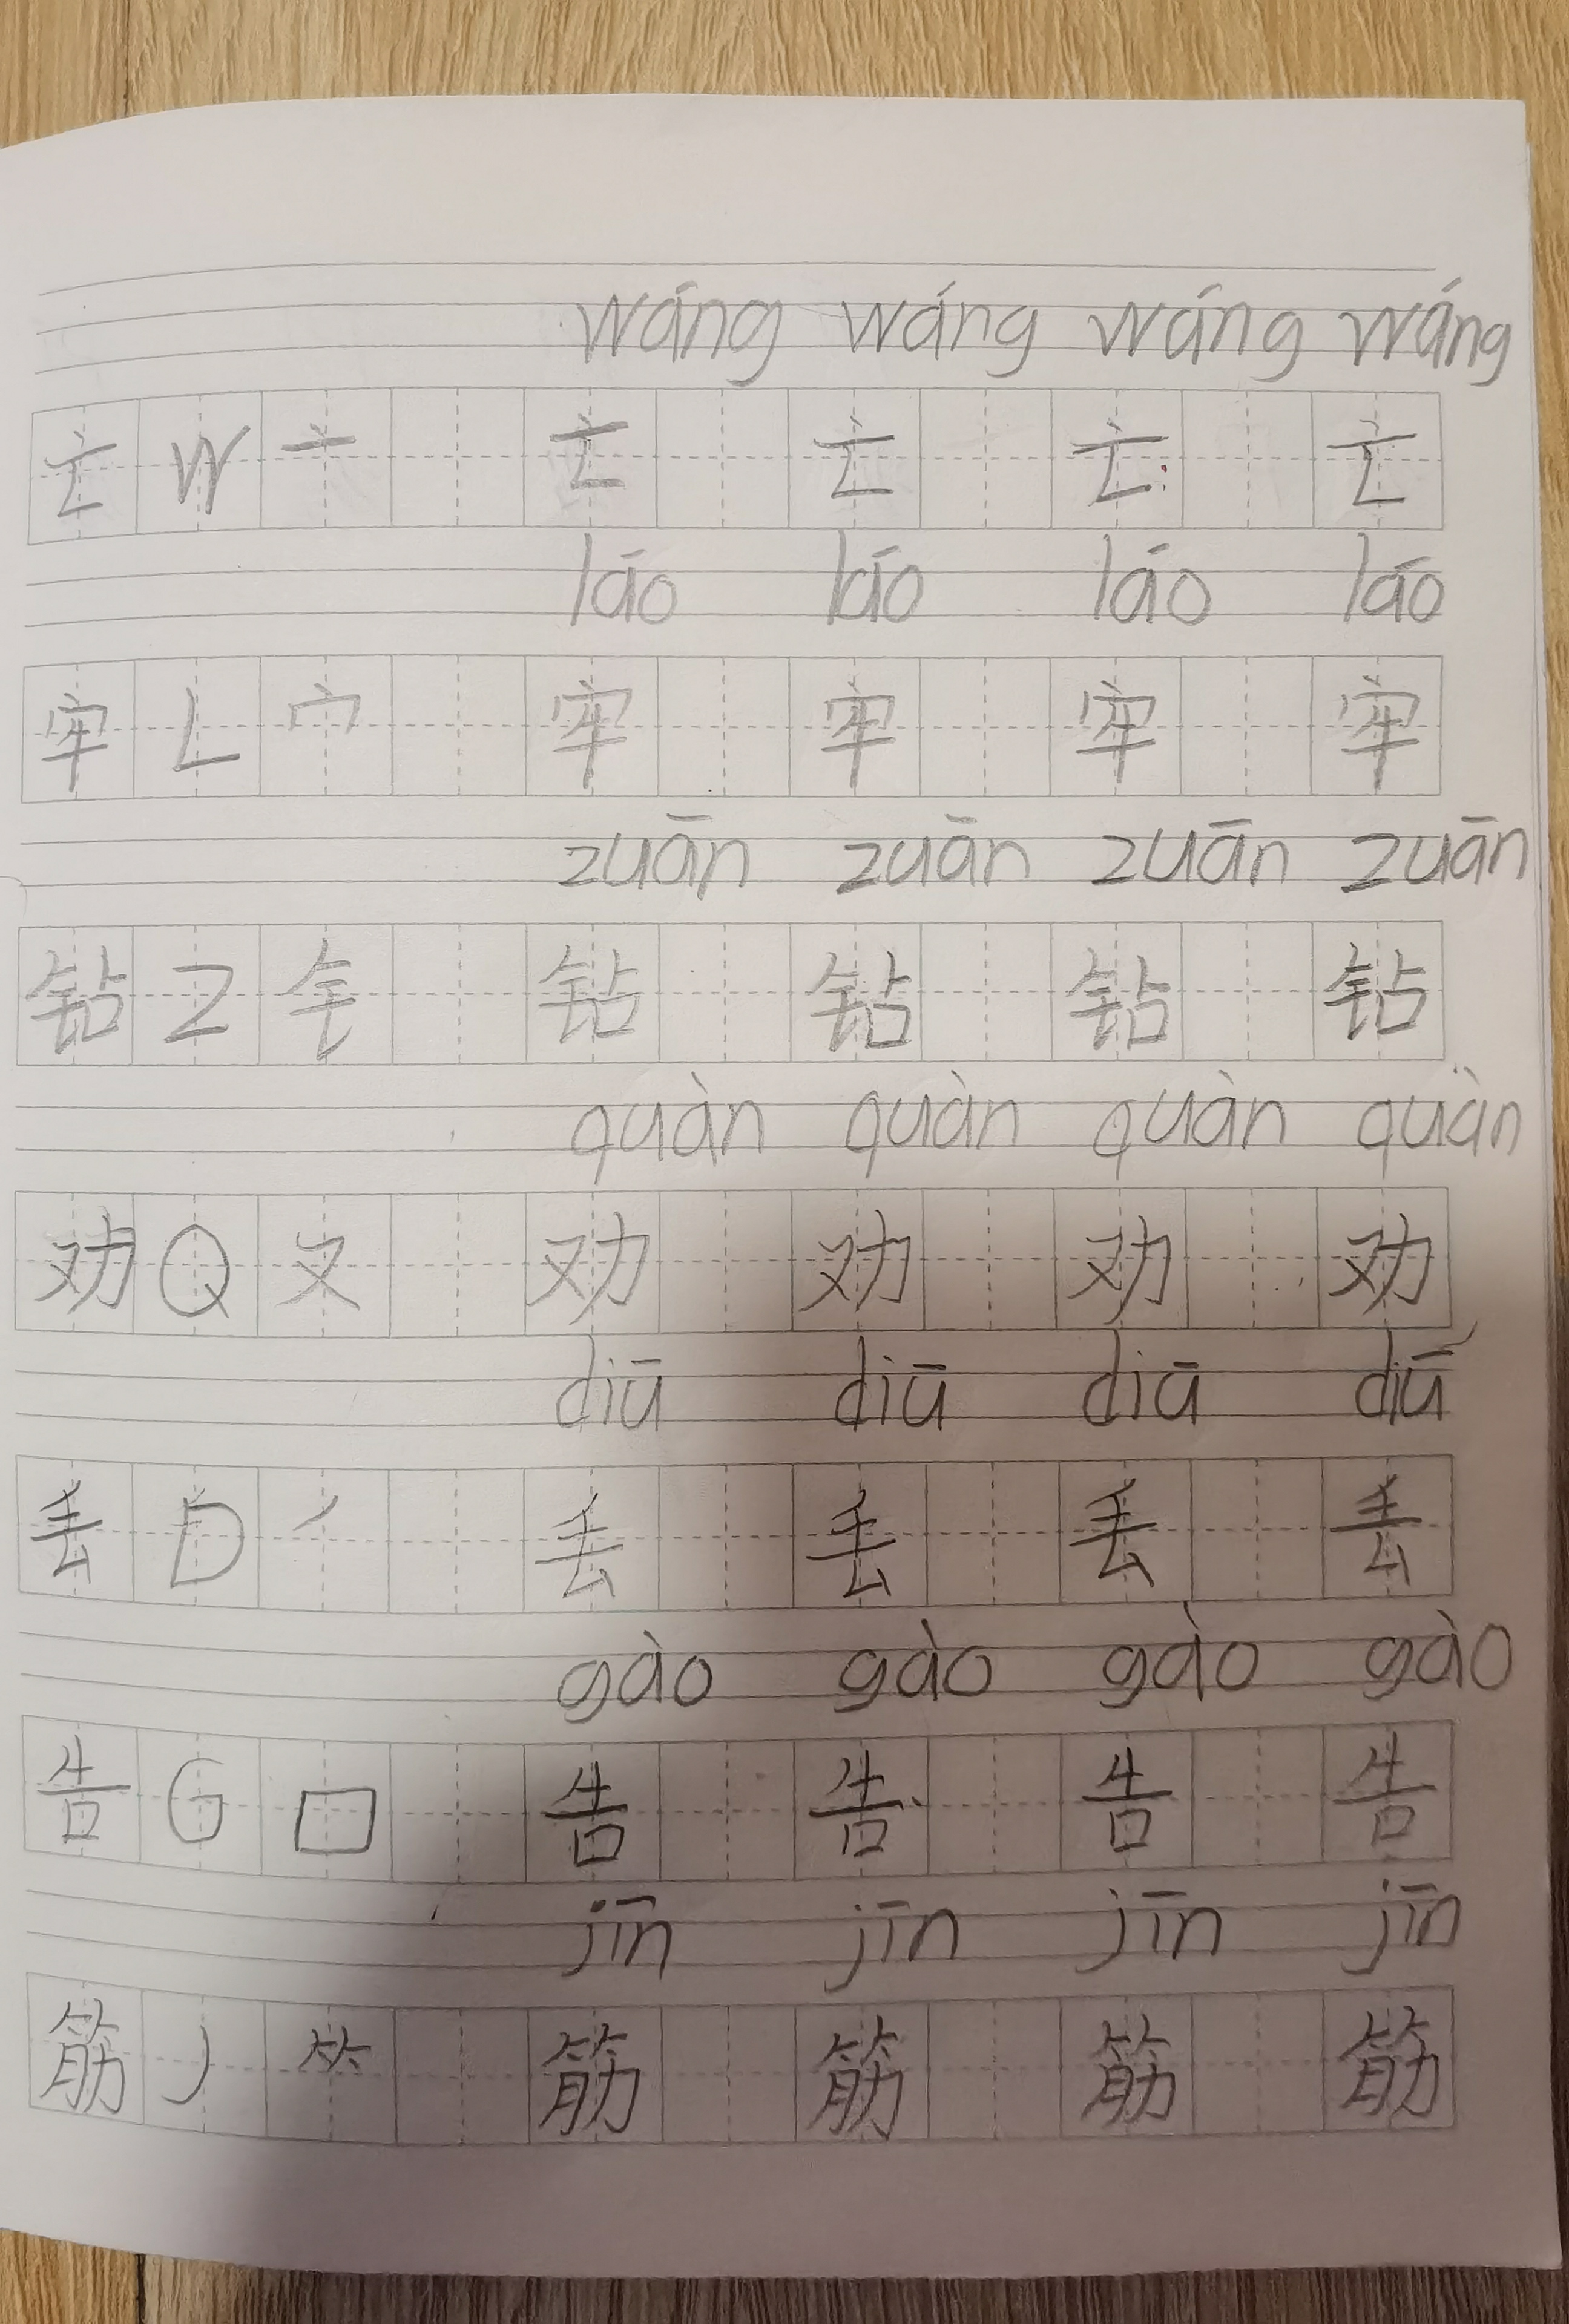 wáng wáng wáng wáng
亡 W 亠 亡 亡 亡 亡
láo láo láo láo
牢 L 宀 牢 牢 牢 牢
zuān zuān zuān zuān
钻 Z 钅 钻 钻 钻 钻
quàn quàn quàn quàn
劝 Q 又 劝 劝 劝 劝
diū diū diū diū
丢 D 丿 丢 丢 丢 丢
gào gào gào gào
告 G 口 告 告 告 告
jīn jīn jīn jīn
筋 J ⺮ 筋 筋 筋 筋